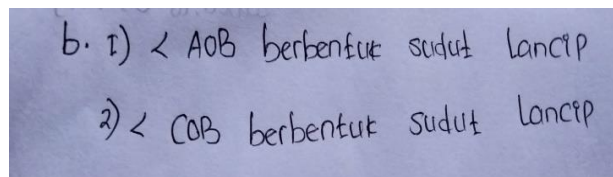 b. 1) < AOB berbentuk sudut lancip
2) < COB berbentuk sudut lancip